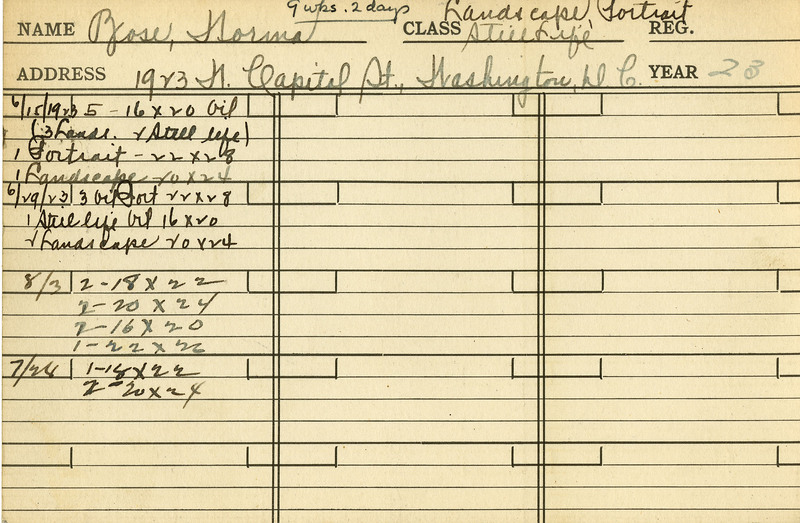 9 wks. 2 days
Landscape, Portrait
NAME Bose, Norma CLASS Still Life REG.
ADDRESS 1923 N. Capital St., Washington, D.C. YEAR 23
6/15/1923 5 - 16 x 20 Oil
(3 Lands. 2 Still life)
1 Portrait - 22 x 28
1 Landscape 20 x 24
6/29/23 3 Oil Port 22 x 28
1 Still life Oil 16 x 20
2 Landscape 20 x 24
8/3 2 - 18 x 22
2 - 20 x 24
2 - 16 x 20
1 - 22 x 26
7/26 1 - 18 x 22
2 - 20 x 24